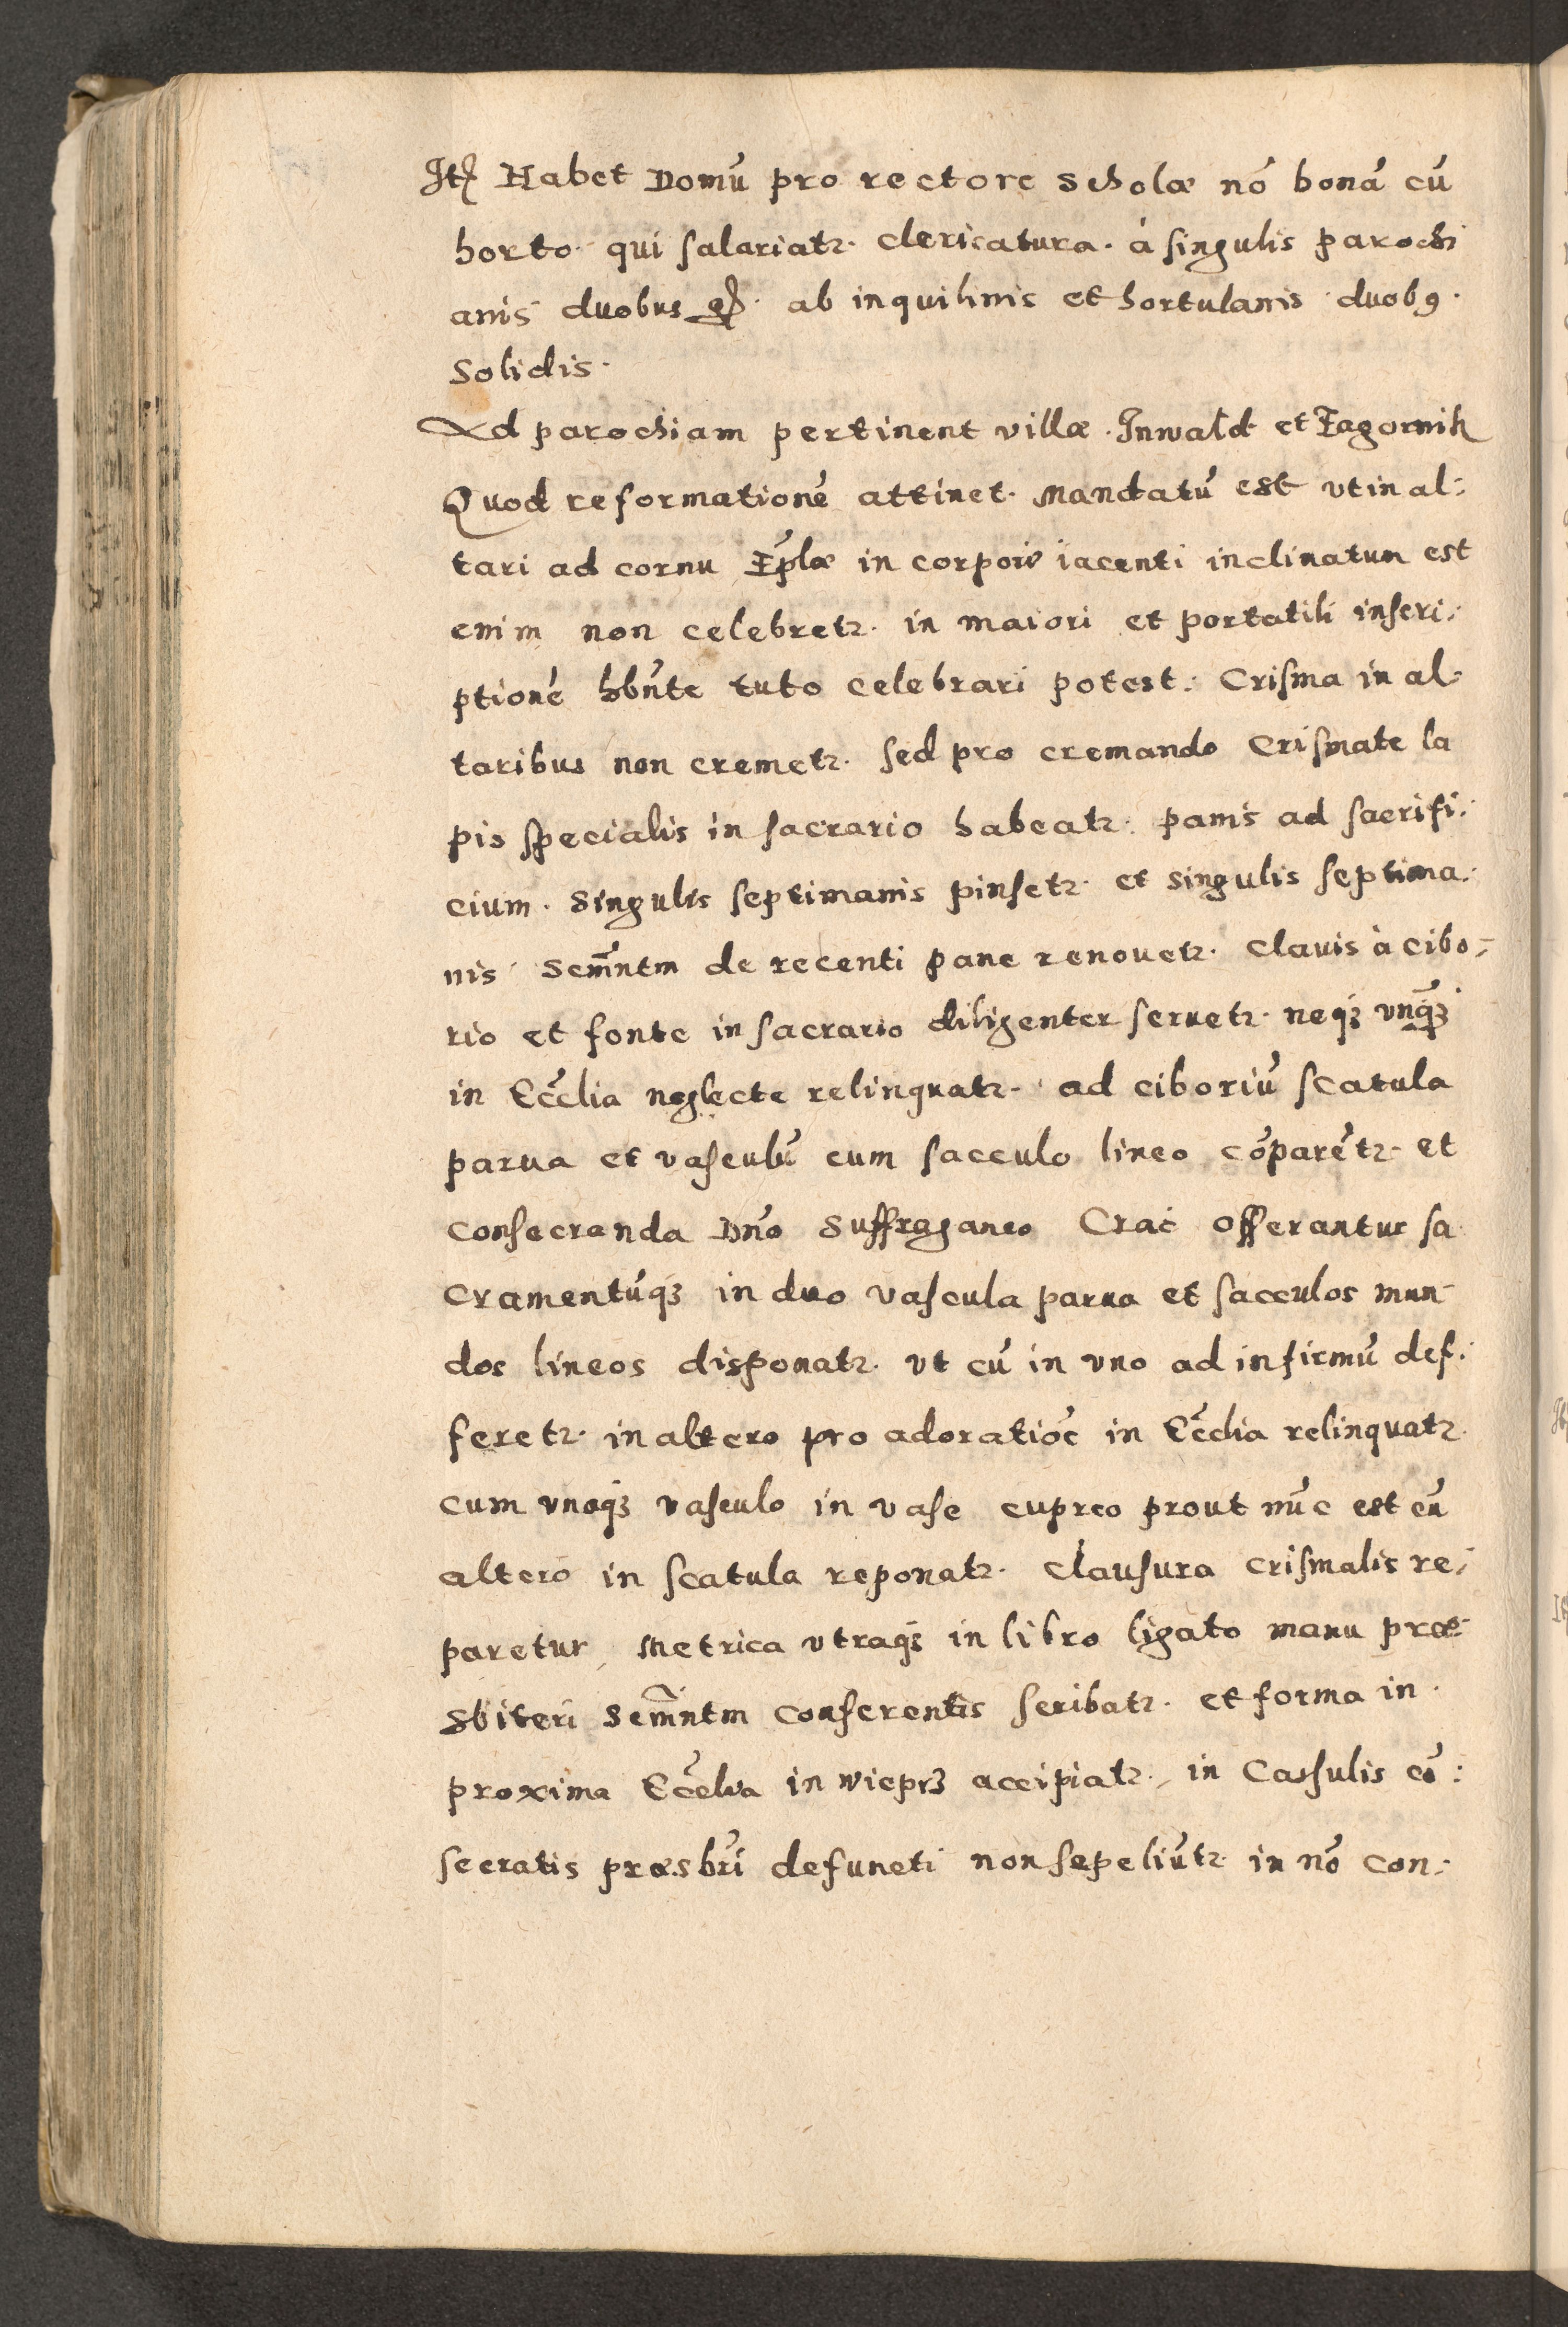 Itē Habet Domū pro rectore scholæ nō bonā cū
horto qui salariatr. clericatura. à singulis parochi
anis duobus gß. ab inquilinis et hortulanis duobꝯ.
Solidis.
Ad parochiam pertinent villæ. Inwald et Zagornik
Quod reformationē attinet. Mandatū est vt in al:
tari ad cornu Epĺæ in corpore iacenti inclinatum est
enim non celebretr. in maiori et portatili inscri:
ptionē hbn̄te tuto celebrari potest. Crisma in al:
taribus non cremetr. sed pro cremando Crismate la
pis specialis in sacrario habeatr. panis ad sacrifi:
cium. Singulis septimanis pinsetr. et singulis septima:
nis Scm̄ntm de recenti pane renouetr. Clauis à cibo:
rio et fonte in sacrario diligenter seruetr. neqꝫ vnq̄ꝫ
in Eccĺia neglecte relinquatr. ad ciboriū scatula
parua et vasculū cum sacculo lineo cōparētr. et
consecranda Dn̄o Suffraganeo Crac̄ offerantur sa
cramentūqꝫ in duo vascula parua et sacculos mun
dos lineos disponatr. vt cū in vno ad infirmū def:
feretr. in altero pro adoratiōe in Eccĺia relinquatr.
cum vnoqꝫ vasculo in vase cupreo prout nūc est cū
altero in scatula reponatr. Clausura crismalis re:
paretur, Metrica vtraqꝫ in libro ligato manu præ
sbiteri Scm̄ntm conferentis scribatr. et forma in
proxima Eccĺia in Wieprz accipiatr., in Cassulis cō:
secratis præsbr̄i defuncti non sepeliūtr. in nō con: